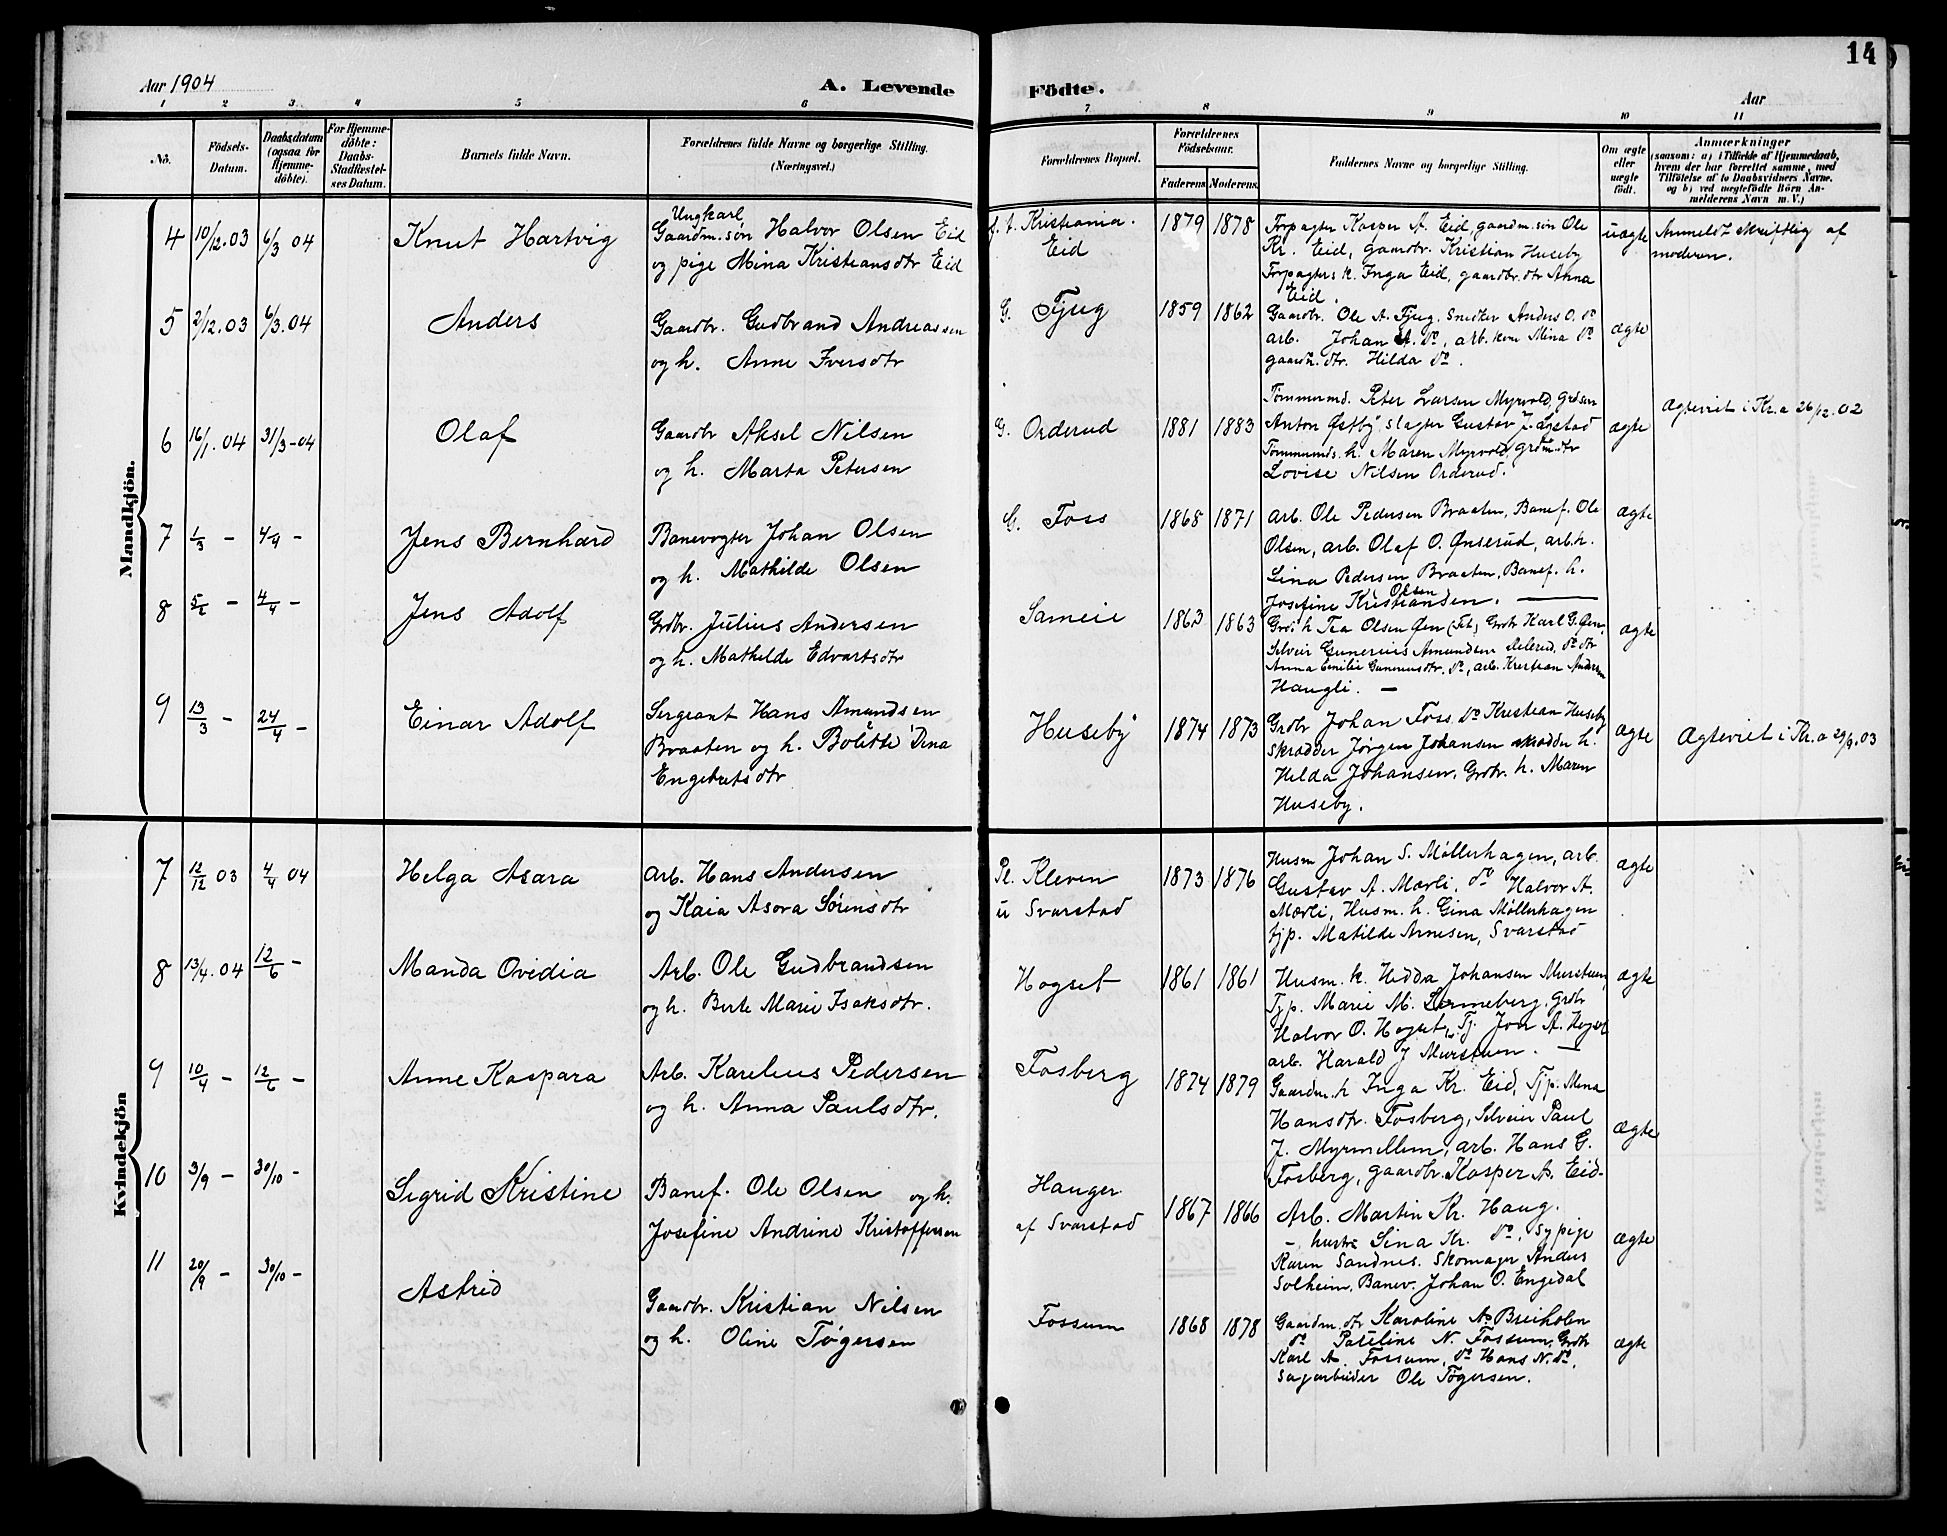 14
Aar 1904
A. Levende
Födte.
Aar
1 2 3 4 5 6
7 8 9 10 11
No.
Födsels-
Datum.
Daabsdatum
(ogsaa for
Hjemme-
döbte).
For Hjemme-
döbte:
Daabs-
Stadfæstel-
ses Datum.
Barnets fulde Navn.
Forældrenes fulde Navne og borgerlige Stilling.
(Næringsvei.)
Forældrenes Bopæl.
Forældrenes
Födselsaar.
Faderens. Moderens.
Faddernes Navne og borgerlige Stilling.
Om ægte
eller
uægte
födt.
Anmærkninger
(saasom: a) i Tilfælde af Hjemmedaab,
hvem der har forrettet samme, med
Tilföielse af to Daabsvidners Navne,
og b) ved uægtefödte Börn An-
melderens Navn m. V.)
Mandkjön.
4 10/12.03 6/3 04 Knut Hartvig
Ungkarl
Gaardm.søn Halvor Olsen Eid
og pige Mina Kristiansdtr Eid
f. t. Kristiania.
Eid
1879 1878
Forpagter Kasper A. Eid, gaardm.søn Ole
Kr. Eid, gaardbr. Kristian Huseby
Forpagters k. Inga Eid, gaardbr. dtr Anna
Eid.
uægte
Anmeldt skriftlig af
moderen.
5 2/12.03 6/3.04 Anders
Gaardbr. Gudbrand Andreassen
og h. Anne Iversdtr
G. Fjug
1859 1862
Gaardbr. Ole A. Fjug. Snedker Anders O. do
arb. Johan A. do, arb. kone Mina do
gaardm. dtr. Hilda do.
ægte
6 16/1.04 31/3-04 Olaf
Gaardbr Aksel Nilsen
og h. Marta Petersen
G. Orderud
1881 1883
Tømmermd. Peter Larsen Myrvold, grdsøn
Anton Østby, slagter Gustav J. Lystad
Tømmermds. h. Maren Myrvold, grdm.dtr
Lovise Nilsen Orderud.
ægte
Ægteviet i Kr.a 26/12.02
7 1/3 - 4/4 - Jens Bernhard
Banevogter Johan Olsen
og h. Mathilde Olsen
G. Foss
1868 1871
Arb. Ole Pedersen Braaten, Banef. Ole
Olsen, arb. Olaf O. Ønserud, arb.h.
Lina Pedersen Braaten, Banef. h.
Olsen
Josefine Kristiansen.
ægte
8 5/2 - 4/4 - Jens Adolf
Grdbr. Julius Andersen
og h. Mathilde Edvartsdtr
Sameie
1863 1863
Grdb. h Tea Olsen Øen (Fet), Grdbr Karl G. Øen,
Selveir Gunerius Amundsen Delerud, do dtr
Anna Emilie Gunneriusdtr. do, arb. Kristian Andersen
Haugli. -
ægte
9 13/3 - 24/4 - Einar Adolf
Sergeant Hans Amundsen
Braaten og h. Bolette Dina
Engebretsdtr
Huseby
1874 1873
Grdbr Johan Foss. do Kristian Huseby
skrædder Jørgen Johansen skrædder h.
Hilda Johansen, Grdbr. h. Maren
Huseby.
ægte
Ægteviet i Kr.a 29/9.03
Kvindekjön
7 12/12 03 4/4 04 Helga Asara
Arb. Hans Andersen
og Kaia Asora Sørensdtr
Pl. Kleven
u Svarstad
1873 1876
Husm Johan S. Møllerhagen, arb.
Gustav A. Mærli, do Halvor A.
Mærli, Husm. h. Gina Møllerhagen
tjp. Matilde Arnesen, Svarstad
ægte
8 13/4.04 12/6 - Manda Ovidia
Arb. Ole Gudbrandsen
og h. Berte Marie Isaksdtr.
Hogset
1861 1861
Husm. k. Hedda Johansen Murstuen,
Tjp. Marie M. Linneberg, Grdbr
Halvor O. Hogset, Tj. Jon A. Hogset
arb. Harald J Murstuen. -
ægte
9 10/4 - 12/6 - Anne Kaspara
Arb. Karelius Pedersen
og h. Anna Paulsdtr.
Fosberg
1874 1879
Gaardm. h Inga Kr. Eid, Tjp. Mina
Hansdtr. Fosberg, Selveier Paul
J. Myrmellem, arb. Hans G.
Fosberg, gaardbr. Kasper A. Eid.
ægte
10 3/9 - 30/10 - Sigrid Kristine
Banef. Ole Olsen og h.
Josefine Andrine Kristoffersen
Hauger
af Svarstad
1867 1866
Arb. Martin Kr. Haug.
- hustr. Lina Kr. do, Sypige
Karen Sandnes. Skomager Anders
Solheim, Banev. Johan O. Engedal
ægte
11 20/9 - 30/10 - Astrid
Gaardbr. Kristian Nilsen
og h. Oline Tøgersen
Fossum
1868 1878
Gaardm. dtr Karoline A. Breiholen
do Pauline N. Fossum, Grdbr
Karl A. Fossum, do Hans N. do,
Sagarbeider Ole Tøgersen.
ægte